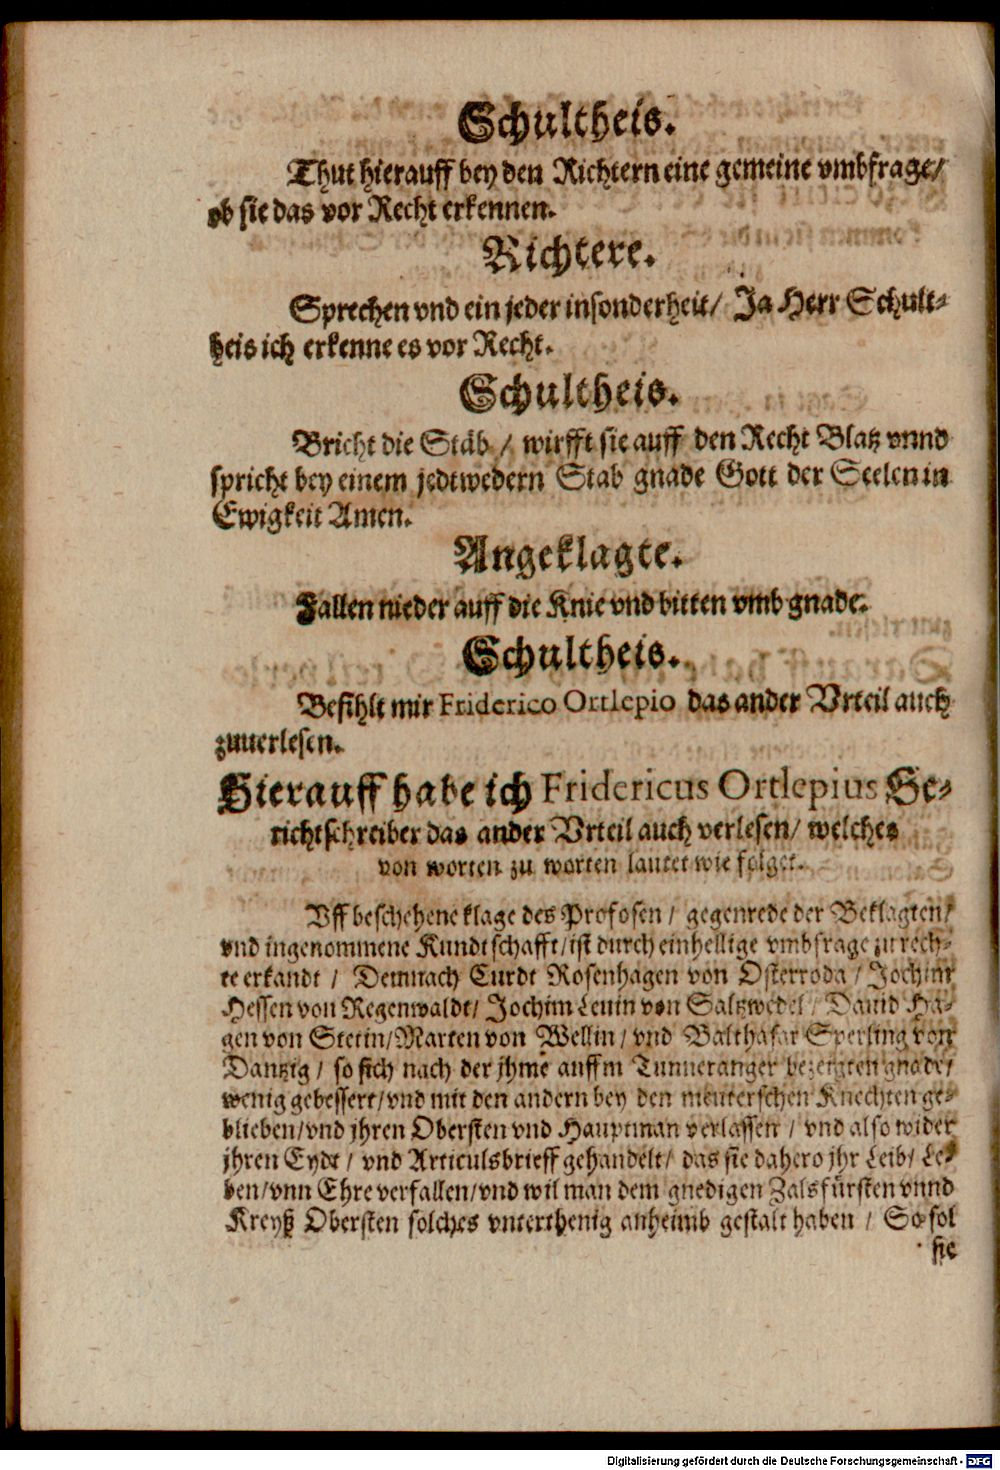 Schultheis.
Thut hierauff bey den Richtern eine gemeine vmbfrage/
ob sie das vor Recht erkennen.
Richtere.
Sprechen vnd ein jeder insonderheit/ Ja Herr Schult-
heis ich erkenne es vor Recht.
Schultheis.
Bricht die Stäb / wirfft sie auff den Recht Blatz vnnd
spricht bey einem jedtwedern Stab gnade Gott der Seelen in
Ewigkeit Amen.
Angeklagte.
Fallen nieder auff die Knie vnd bitten vmb gnade.
Schultheis.
Befihlt mir Friderico Ortlepio das ander Vrteil auch
zuuerlesen.
Hierauff habe ich Fridericus Ortlepius Ge-
richtschreiber das ander Vrteil auch verlesen/ welches
von worten zu worten lautet wie folget.
Vff beschehene klage des Profosen / gegenrede der Beklagten/
vnd ingenommene Kundtschafft/ist durch einhellige vmbfrage zu rech-
te erkandt / Demnach Curdt Rosenhagen von Osterroda / Jochim
Hessen von Regenwaldt/ Jochim Leuin von Saltzwedel / Dauid Ha-
gen von Stetin/Marten von Wellin / vnd Balthasar Sperling von
Dantzig / so sich nach der jhme auffm Tunneranger bezeigten gnade/
wenig gebessert/vnd mit den andern bey den meuterschen Knechten ge-
blieben/vnd jhren Obersten vnd Hauptman verlassen / vnd also wider
jhren Eydt / vnd Articulsbrieff gehandelt/ das sie dahero jhr Leib/ Le-
ben/vnn Ehre verfallen/vnd wil man dem gnedigen Zalsfürsten vnnd
Kreyß Obersten solches vnterthenig anheimb gestalt haben / So sol
sie
Digitalisierung gefördert durch die Deutsche Forschungsgemeinschaft - DFG